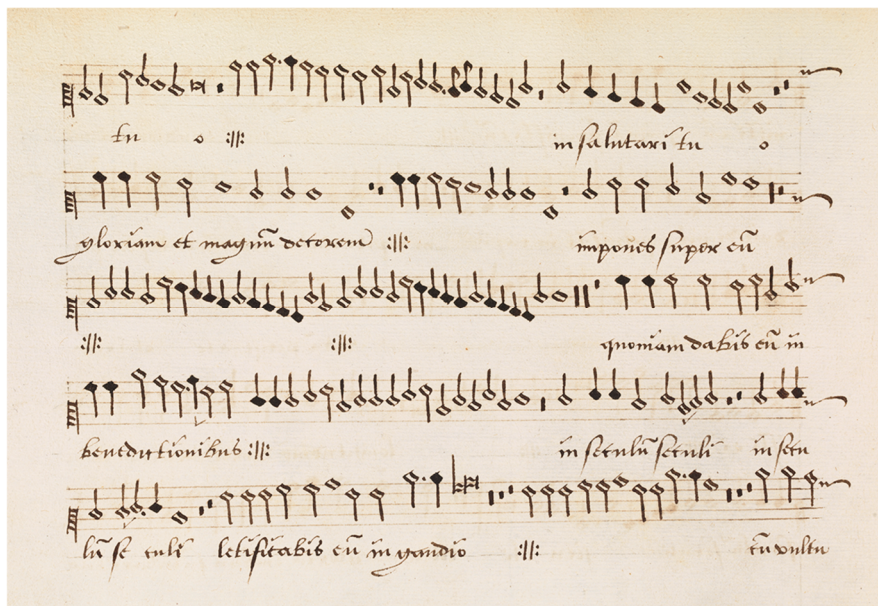 tu o :||: in salutari tu o
gloriam et magnū decorem :||: impones super eū
:||: :||: quoniam dabis eū in
benedictionibus :||: in seculū seculi in secu
lū se culi letificabis eū in gaudio :||: cū vultu